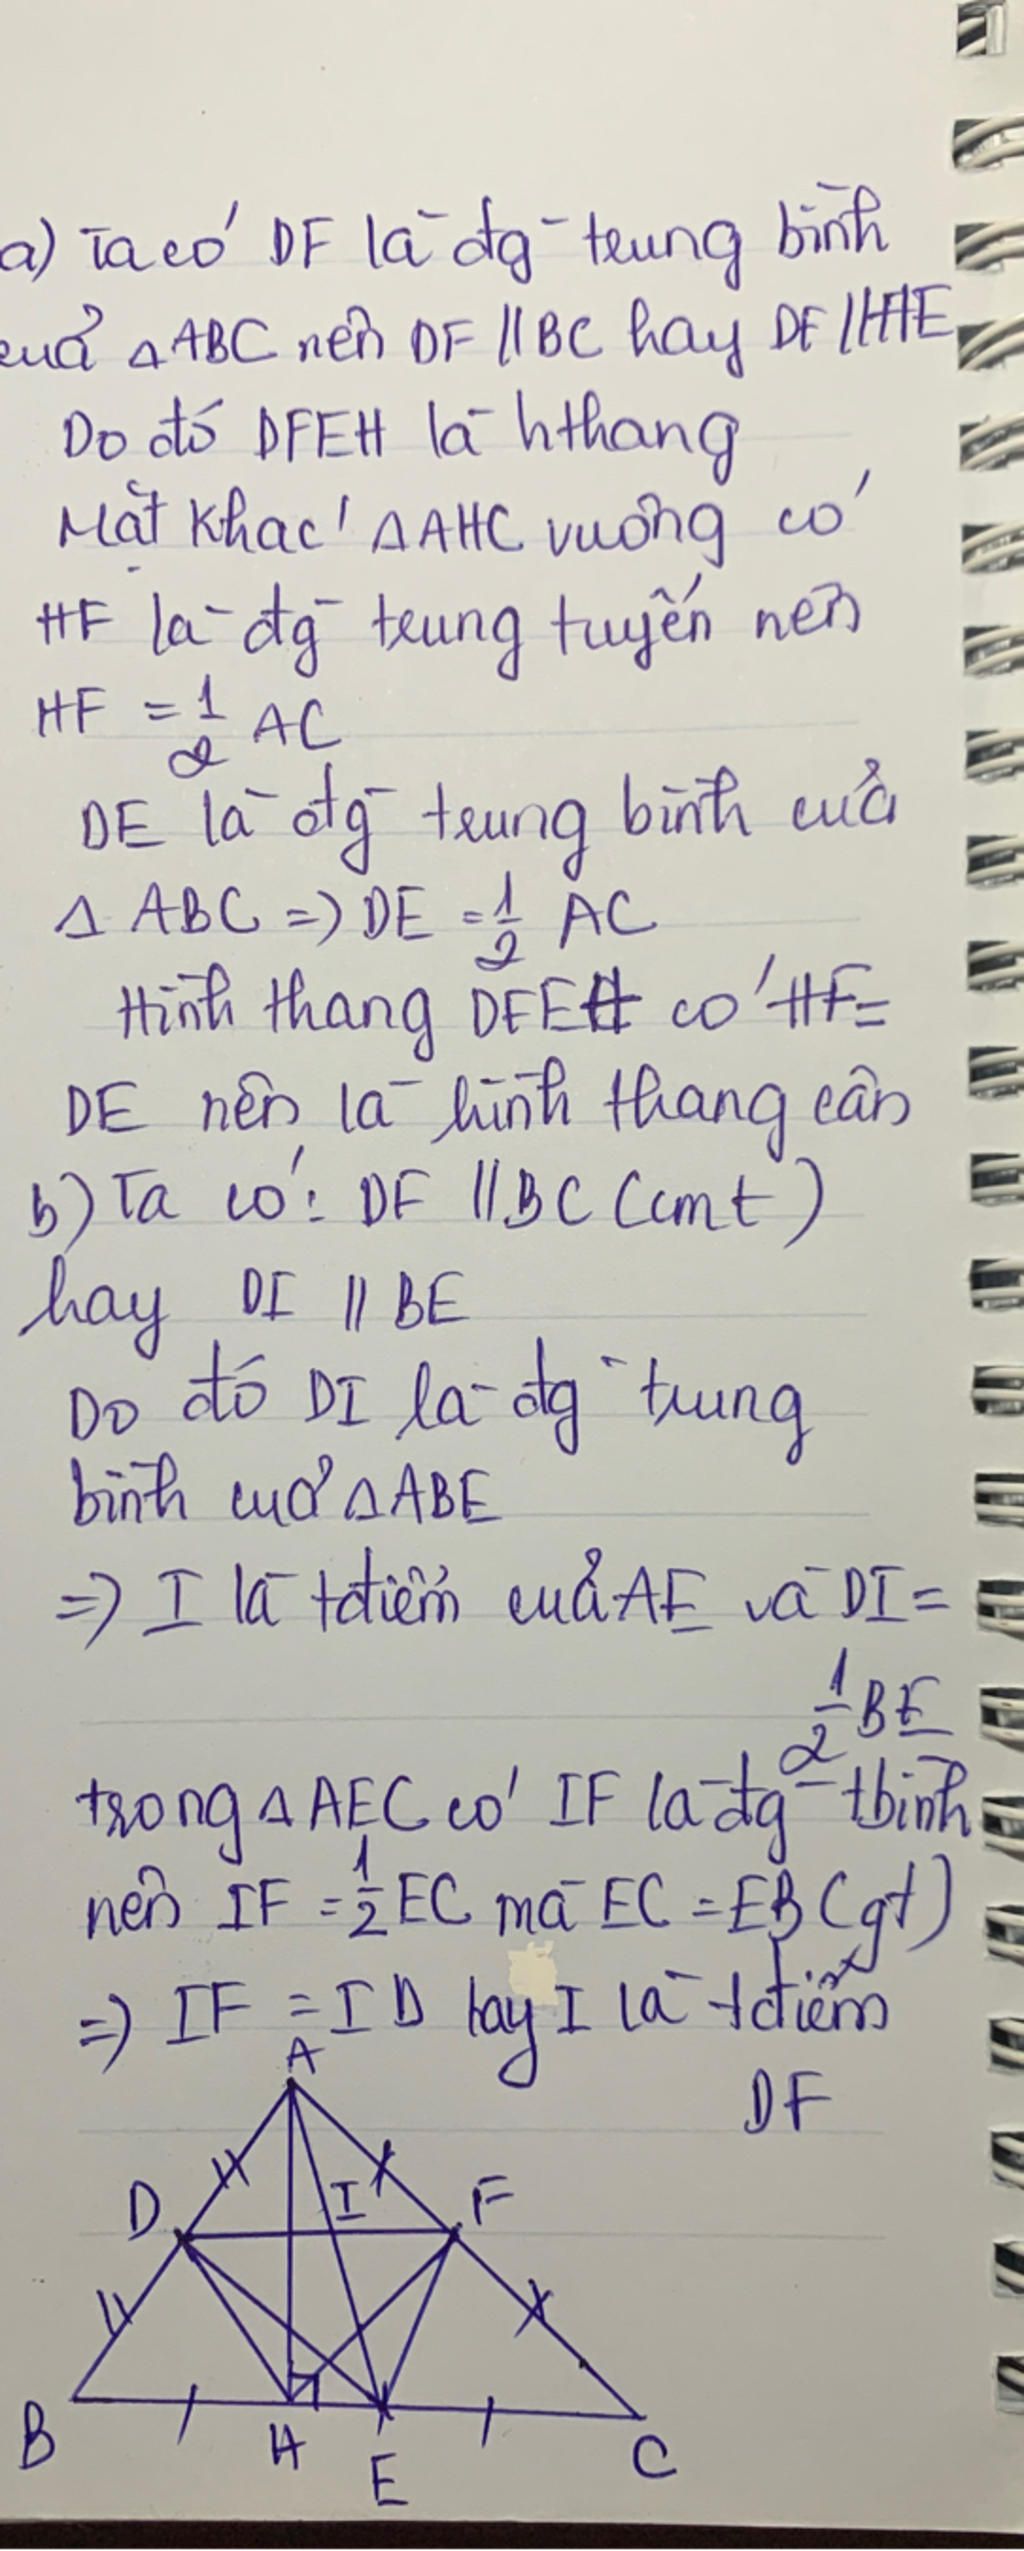 a) Ta có DF là đg trung bình
của △ABC nên DF // BC hay DF // HE
Do đó DFEH là hthang
Mặt khác △AHC vuông có
HF là đg trung tuyến nên
HF = 1/2 AC
DE là đg trung bình của
△ ABC => DE = 1/2 AC
Hình thang DFEH có HF =
DE nên là hình thang cân
b) Ta có: DF // BC (cmt)
hay DI // BE
Do đó DI là đg trung
bình của △ABE
=> I là tđiểm của AE và DI =
1/2 BE
trong △AEC có IF là đg tbình
nên IF = 1/2 EC mà EC = EB (gt)
=> IF = ID hay I là tđiểm
DF
A
D
I
F
B
H
E
C